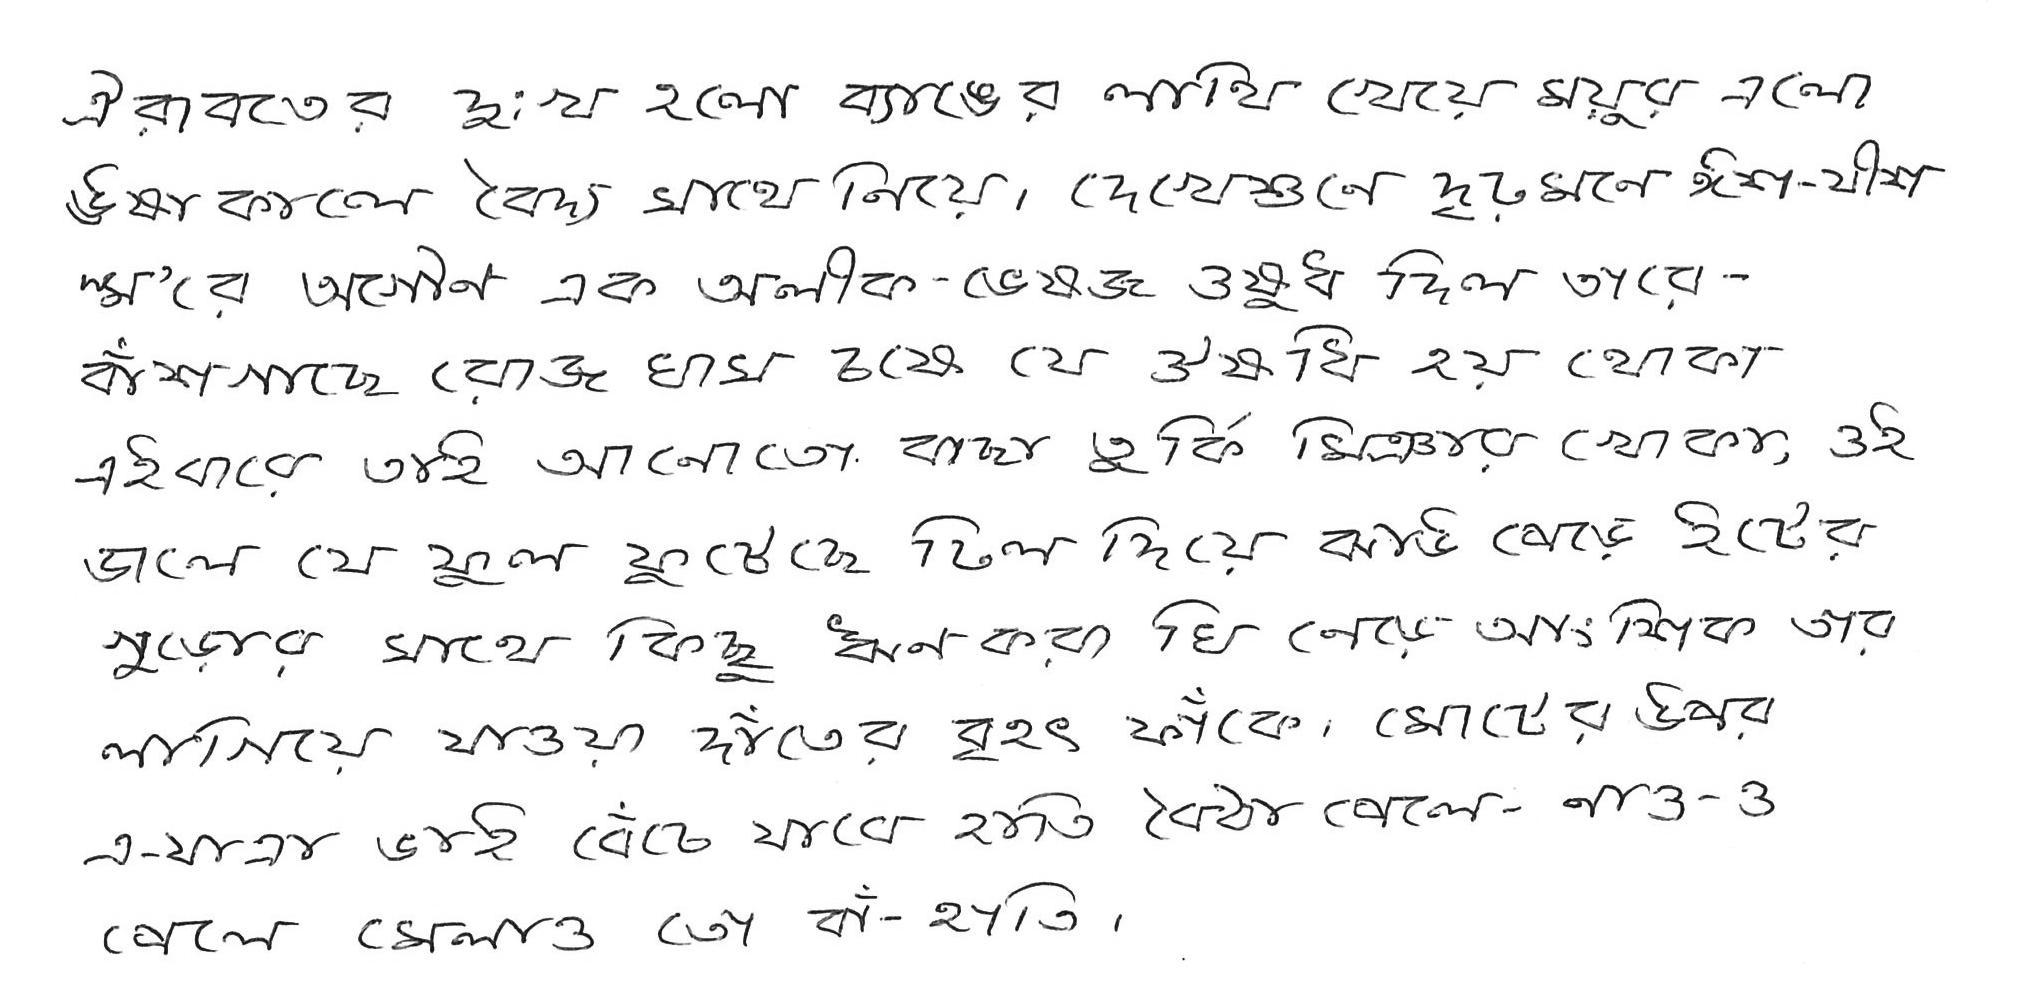 ঐরাবতের দুঃখ হলো ব্যাঙের লাথি খেয়ে ময়ূর এলো
ঊষাকালে বৈদ্য সাথে নিয়ে। দেখেশুনে দৃঢ়মনে ঈশ-যীশ
স্ম'রে অগৌণ এক অলীক-ভেষজ ওষুধ দিল তারে-
বাঁশগাছে রোজ ঘাস চষে যে ঔষধি হয় থোকা
এইবারে তাই আনোতো বাছা তুর্কি মিঞার খোকা, ওই
ডালে যে ফুল ফুটেছে ঢিল দিয়ে ঝাউ পেড়ে ইটের
গুড়োর সাথে কিছু ঋণকরা ঘি নেড়ে আংশিক তার
লাগিয়ে যাওয়া দাঁতের বৃহৎ ফাঁকে। মোটের উপর
এ-যাত্রা ভাই বেঁচে যাবে হাতি বৈঠা পেলে- নাও-ও
পেলে মেলাও তো বাঁ-হাতি।